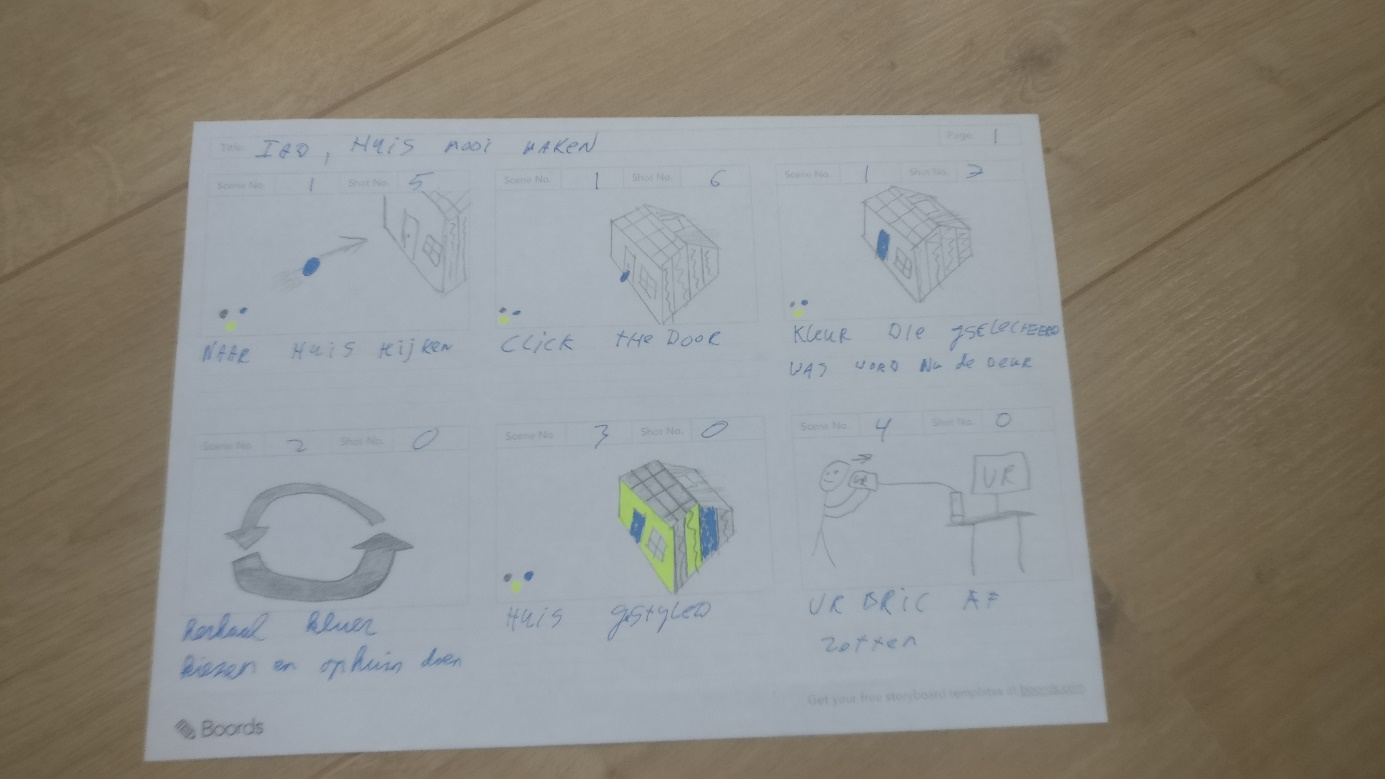 Title: IAO, HUIS MOOI MAKEN
Page: 1
Scene No. 1 Shot No. 5
NAAR HUIS KIJKEN
Scene No. 1 Shot No. 6
CLICK THE DOOR
Scene No. 1 Shot No. 7
KLEUR DIE GSELECTEERD
WAS WORD NU de DEUR
Scene No. 2 Shot No. 0
herhaal kleur
kiezen en ophuis doen
Scene No. 3 Shot No. 0
HUIS gstyled
Scene No. 4 Shot No. 0
VR
VR
VR BRIL AF
zetten
Get your free storyboard templates at boords.com
Boords